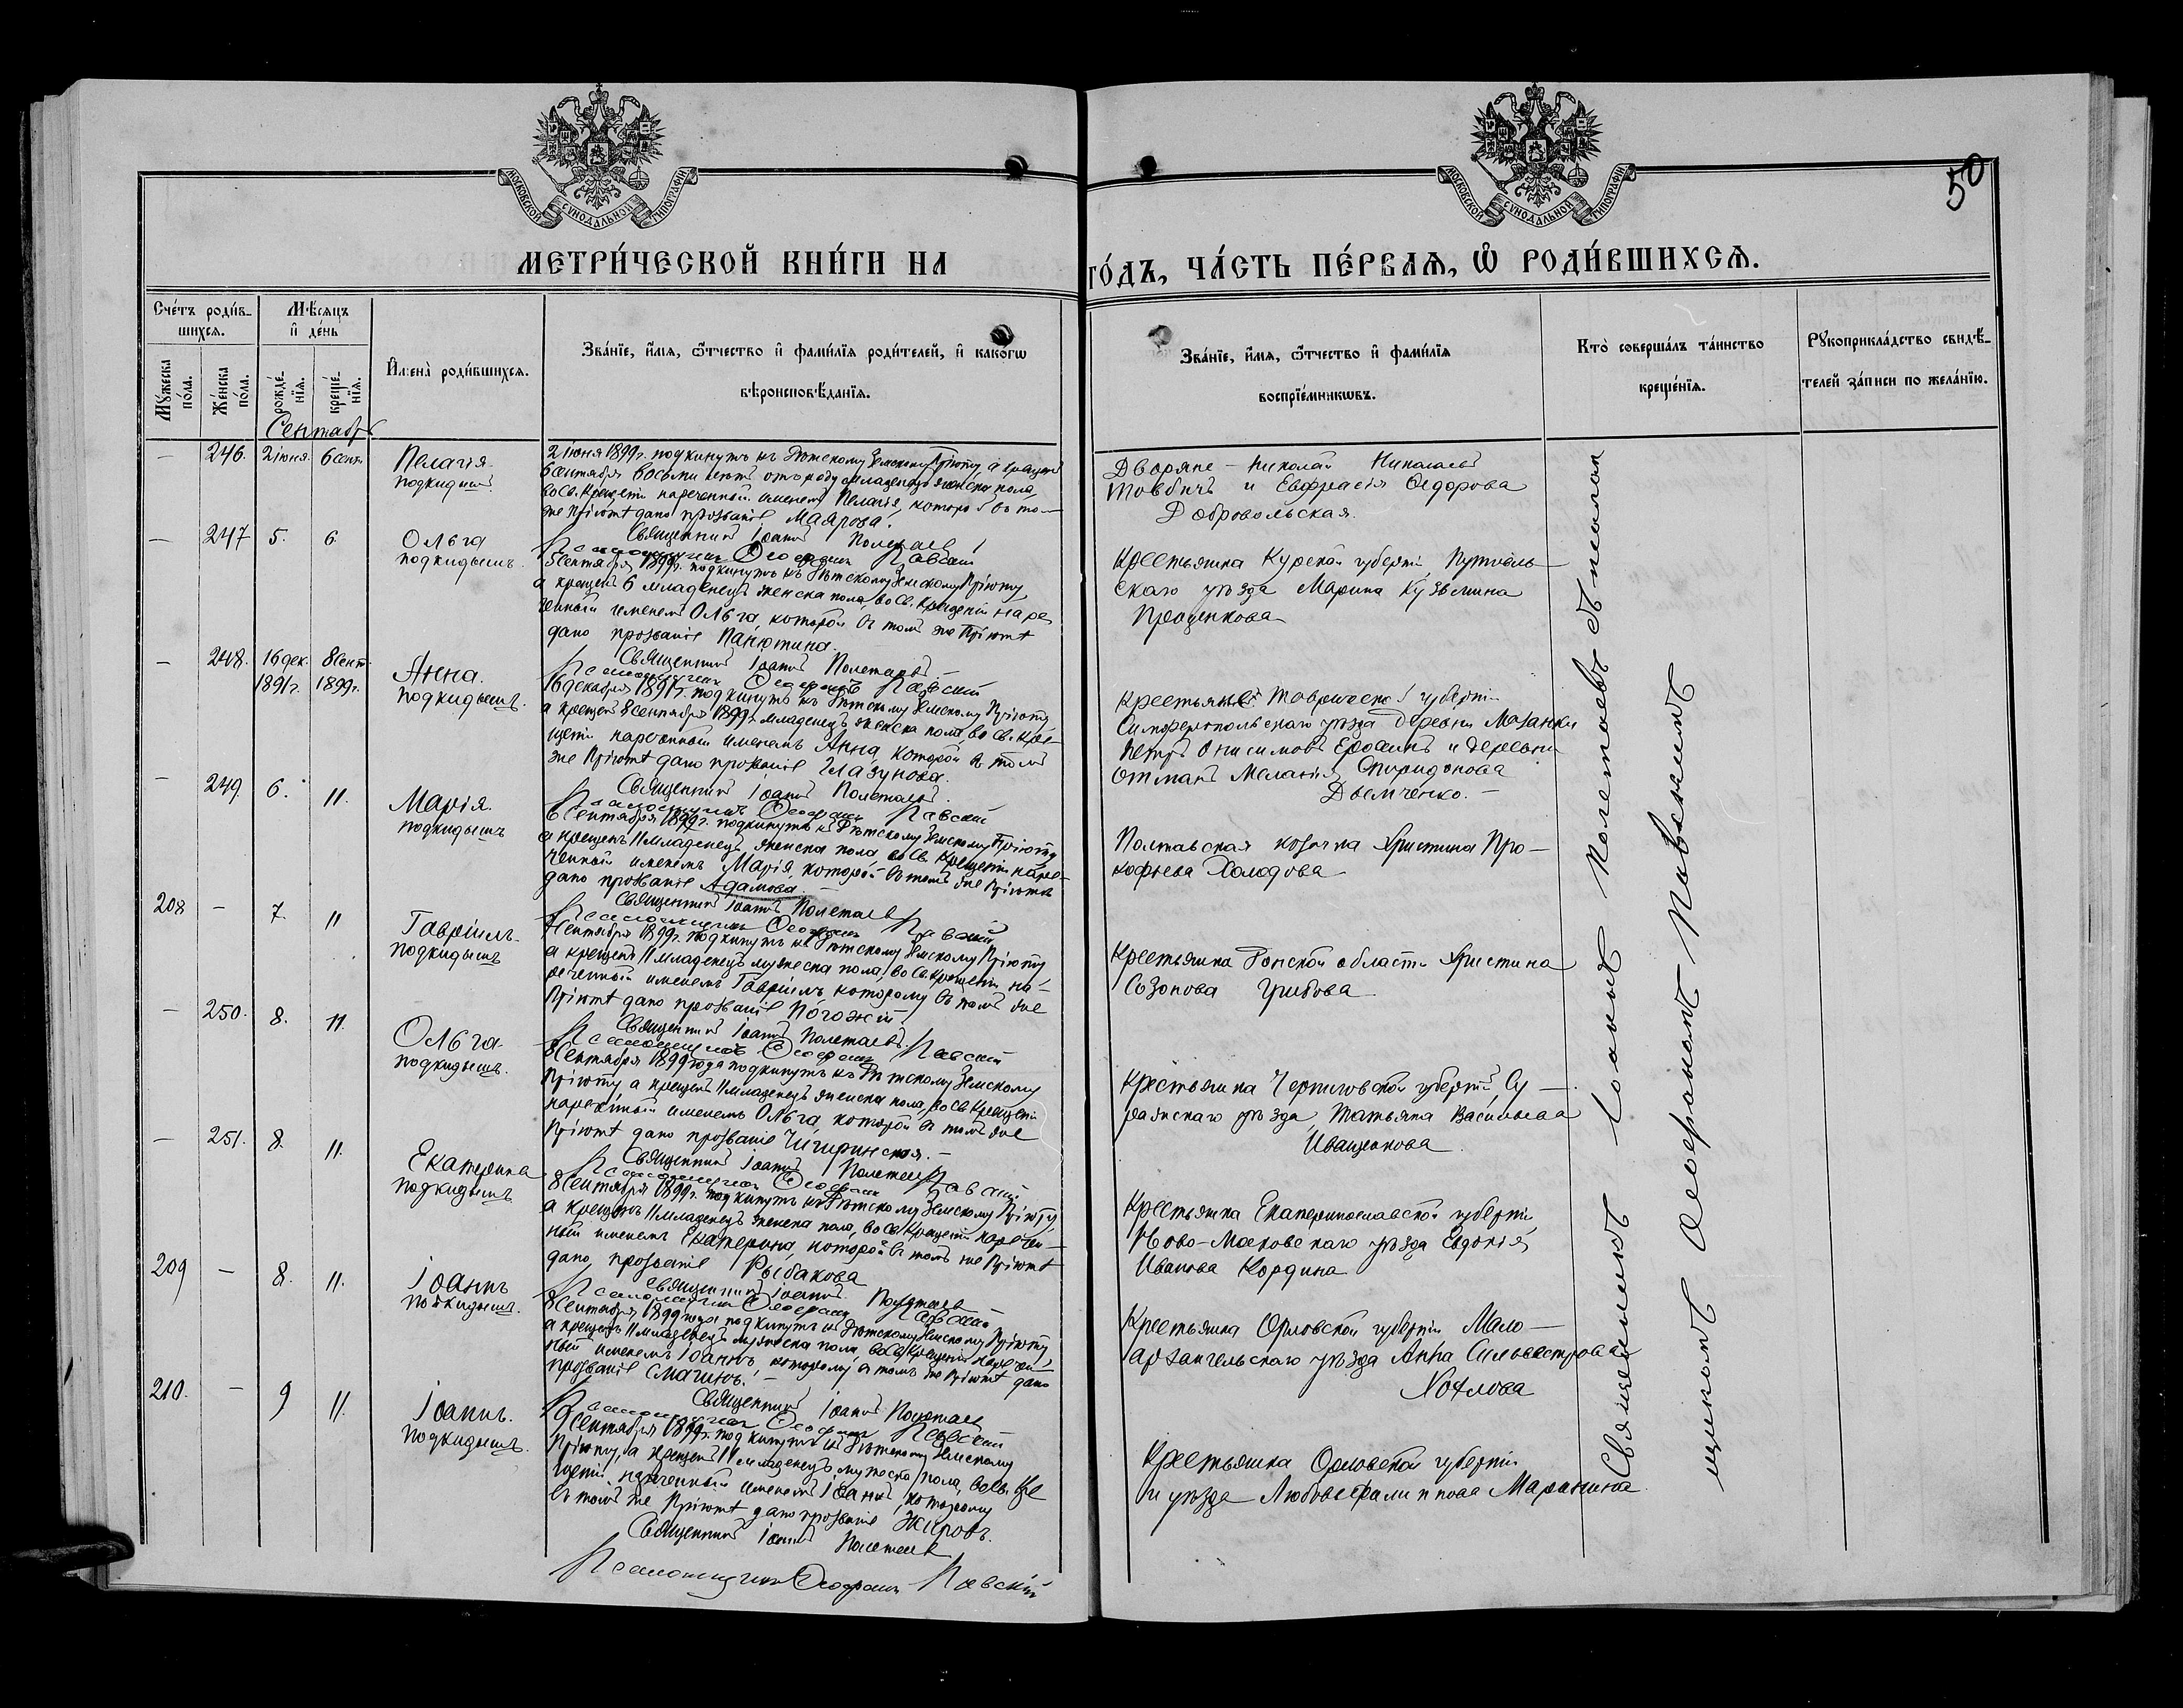 МОСКОВСКОЙ СѴНОДАЛЬНОЙ ТИПОГРАФІИ
МОСКОВСКОЙ СѴНОДАЛЬНОЙ ТИПОГРАФІИ
50
МЕТРИ́ЧЕСКОЙ КНИ́ГИ НА
ГО́ДЪ, ЧА́СТЬ ПЕ́РВАѦ, Ѡ҆ РОДИ́ВШИХСѦ.
Сче́тъ роди́в-
шихсѧ.
Мѣ́сѧцъ
и҆ де́нь
Мꙋ́жеска по́ла.
Же́нска по́ла.
рожде́-нїѧ.
креще́-нїѧ.
И҆мена̀ роди́вшихсѧ.
Зва́нїе, и҆́мѧ, ѻ҆́тчество и҆ фами́лїѧ роди́телей, и҆ како́гѡ
вѣроисповѣ́данїѧ.
Зва́нїе, и҆́мѧ, ѻ҆́тчество и҆ фами́лїѧ
воспрїе́мникѡвъ.
Кто̀ соверша́лъ та́инство
креще́нїѧ.
Рꙋкоприкла́дство свидѣ́-
телей за́писи по жела́нїю.
Сентябрь
— 246. 2 іюня. 6 сент.
Пелагія
подкидышъ
2 іюня 1899 г. подкинутъ къ Дѣтскому Земскому Пріюту, а крещенъ
6 сентября восьми лѣтъ отъ роду младенецъ женска пола,
во Св. Крещеніи нареченный именемъ Пелагія, которой въ томъ
же Пріютѣ дано прозваніе Маярова.
Священникъ Іоаннъ Полетаевъ
Псаломщикъ Ѳеофанъ Павскій
Дворяне – Николай Николаевъ
Товбичъ и Евфрасія Ѳедорова
Добровольская.
— 247 5. 6
Ольга
подкидышъ.
5 сентября 1899 г. подкинутъ къ Дѣтскому Земскому Пріюту,
а крещенъ 6 младенецъ женска пола, во Св. Крещеніи наре
ченный именемъ Ольга, которой въ томъ же Пріютѣ
дано прозваніе Панютина.
Священникъ Іоаннъ Полетаевъ
Псаломщикъ Ѳеофанъ Павскій
Крестьянка Курской губерніи, Путивль-
скаго уѣзда Марина Кузьмина
Проценкова
— 248. 16 дек. 1891 г. 8 сент. 1899 г.
Анна.
подкидышъ.
16 декабря 1891 г. подкинутъ къ Дѣтскому Земскому Пріюту,
а крещенъ 8 сентября 1899 г. младенецъ женска пола, во Св. Кре-
щеніи нареченный именемъ Анна, которой въ томъ
же Пріютѣ дано прозваніе Глазунова.
Священникъ Іоаннъ Полетаевъ.
Псаломщикъ Ѳеофанъ Павскій
Крестьяне Таврической губерніи
Симферопольскаго уѣзда деревни Мазанки
Петръ Онисимовъ Ерохинъ и деревни
Отманъ Меланія Спиридонова
Дьемченко. –
— 249 6. 11.
Марія.
подкидышъ
6 сентября 1899 г. подкинутъ къ Дѣтскому Земскому Пріюту,
а крещенъ 11 младенецъ женска пола, во Св. Крещеніи наре-
ченный именемъ Марія, которой въ томъ же Пріютѣ
дано прозваніе Адамова. –
Священникъ Іоаннъ Полетаевъ
Псаломщикъ Ѳеофанъ Павскій
Полтавская козачка Христина Про-
кофьева Холодова
208 — 7. 11
Гавріилъ
подкидышъ
7 сентября 1899 г. подкинутъ къ Дѣтскому Земскому Пріюту
а крещенъ 11 младенецъ мужеска пола, во Св. Крещеніи на-
реченный именемъ Гавріилъ, которому въ томъ же
Пріютѣ дано прозваніе Погожій.
Священникъ Іоаннъ Полетаевъ.
Псаломщикъ Ѳеофанъ Павскій
Крестьянка Донской области Христина
Созонова Грибова
— 250. 8. 11.
Ольга
подкидышъ.
8 сентября 1899 года подкинутъ къ Дѣтскому Земскому
Пріюту, а крещенъ 11 младенецъ женска пола, во Св. Крещеніи
нареченный именемъ Ольга, которой въ томъ же
Пріютѣ дано прозваніе Чигиринская. –
Священникъ Іоаннъ Полетаевъ
Псаломщикъ Ѳеофанъ Павскій
Крестьянка Черниговской губерніи, Су-
ражскаго уѣзда, Татьяна Васильева
Иващенкова
— 251. 8. 11.
Екатерина
подкидышъ
8 сентября 1899 г. подкинутъ къ Дѣтскому Земскому Пріюту,
а крещенъ 11 младенецъ женска пола, во Св. Крещеніи наречен-
ный именемъ Екатерина, которой въ томъ же Пріютѣ
дано прозваніе Рыбакова
Священникъ Іоаннъ Полетаевъ
Псаломщикъ Ѳеофанъ Павскій
Крестьянка Екатеринославской губерніи,
Ново-Московскаго уѣзда Евдокія
Иванова Кордина
209 — 8. 11.
Іоаннъ
подкидышъ.
8 сентября 1899 года подкинутъ къ Дѣтскому Земскому Пріюту,
а крещенъ 11 младенецъ мужеска пола, во Св. Крещеніи наречен-
ный именемъ Іоаннъ, которому въ томъ же Пріютѣ дано
прозваніе Смагинъ. –
Священникъ Іоаннъ Полетаевъ
Псаломщикъ Ѳеофанъ Павскій
Крестьянка Орловской губерніи Мало-
архангельскаго уѣзда Анна Сильвестрова
Хохлова
210. — 9 11.
Іоаннъ.
подкидышъ.
9 сентября 1899 г. подкинутъ къ Дѣтскому Земскому
Пріюту, а крещенъ 11 младенецъ мужеска пола, во Св. Кре
щеніи нареченный именемъ Іоаннъ, которому
въ томъ же Пріютѣ дано прозваніе Жировъ.
Священникъ Іоаннъ Полетаевъ
Псаломщикъ Ѳеофанъ Павскій
Крестьянка Орловской губерніи
и уѣзда Любовь Маранина
Священникъ Іоаннъ Полетаевъ съ псалом
щикомъ Ѳеофаномъ Павскимъ